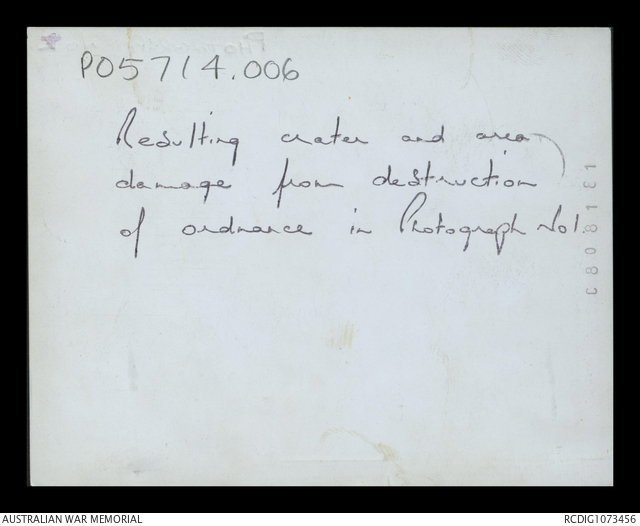 P05714.006
Resulting crater and area
damage from destruction
of ordnance in Photograph No1.
C808181
AUSTRALIAN WAR MEMORIAL
RCDIG1073456